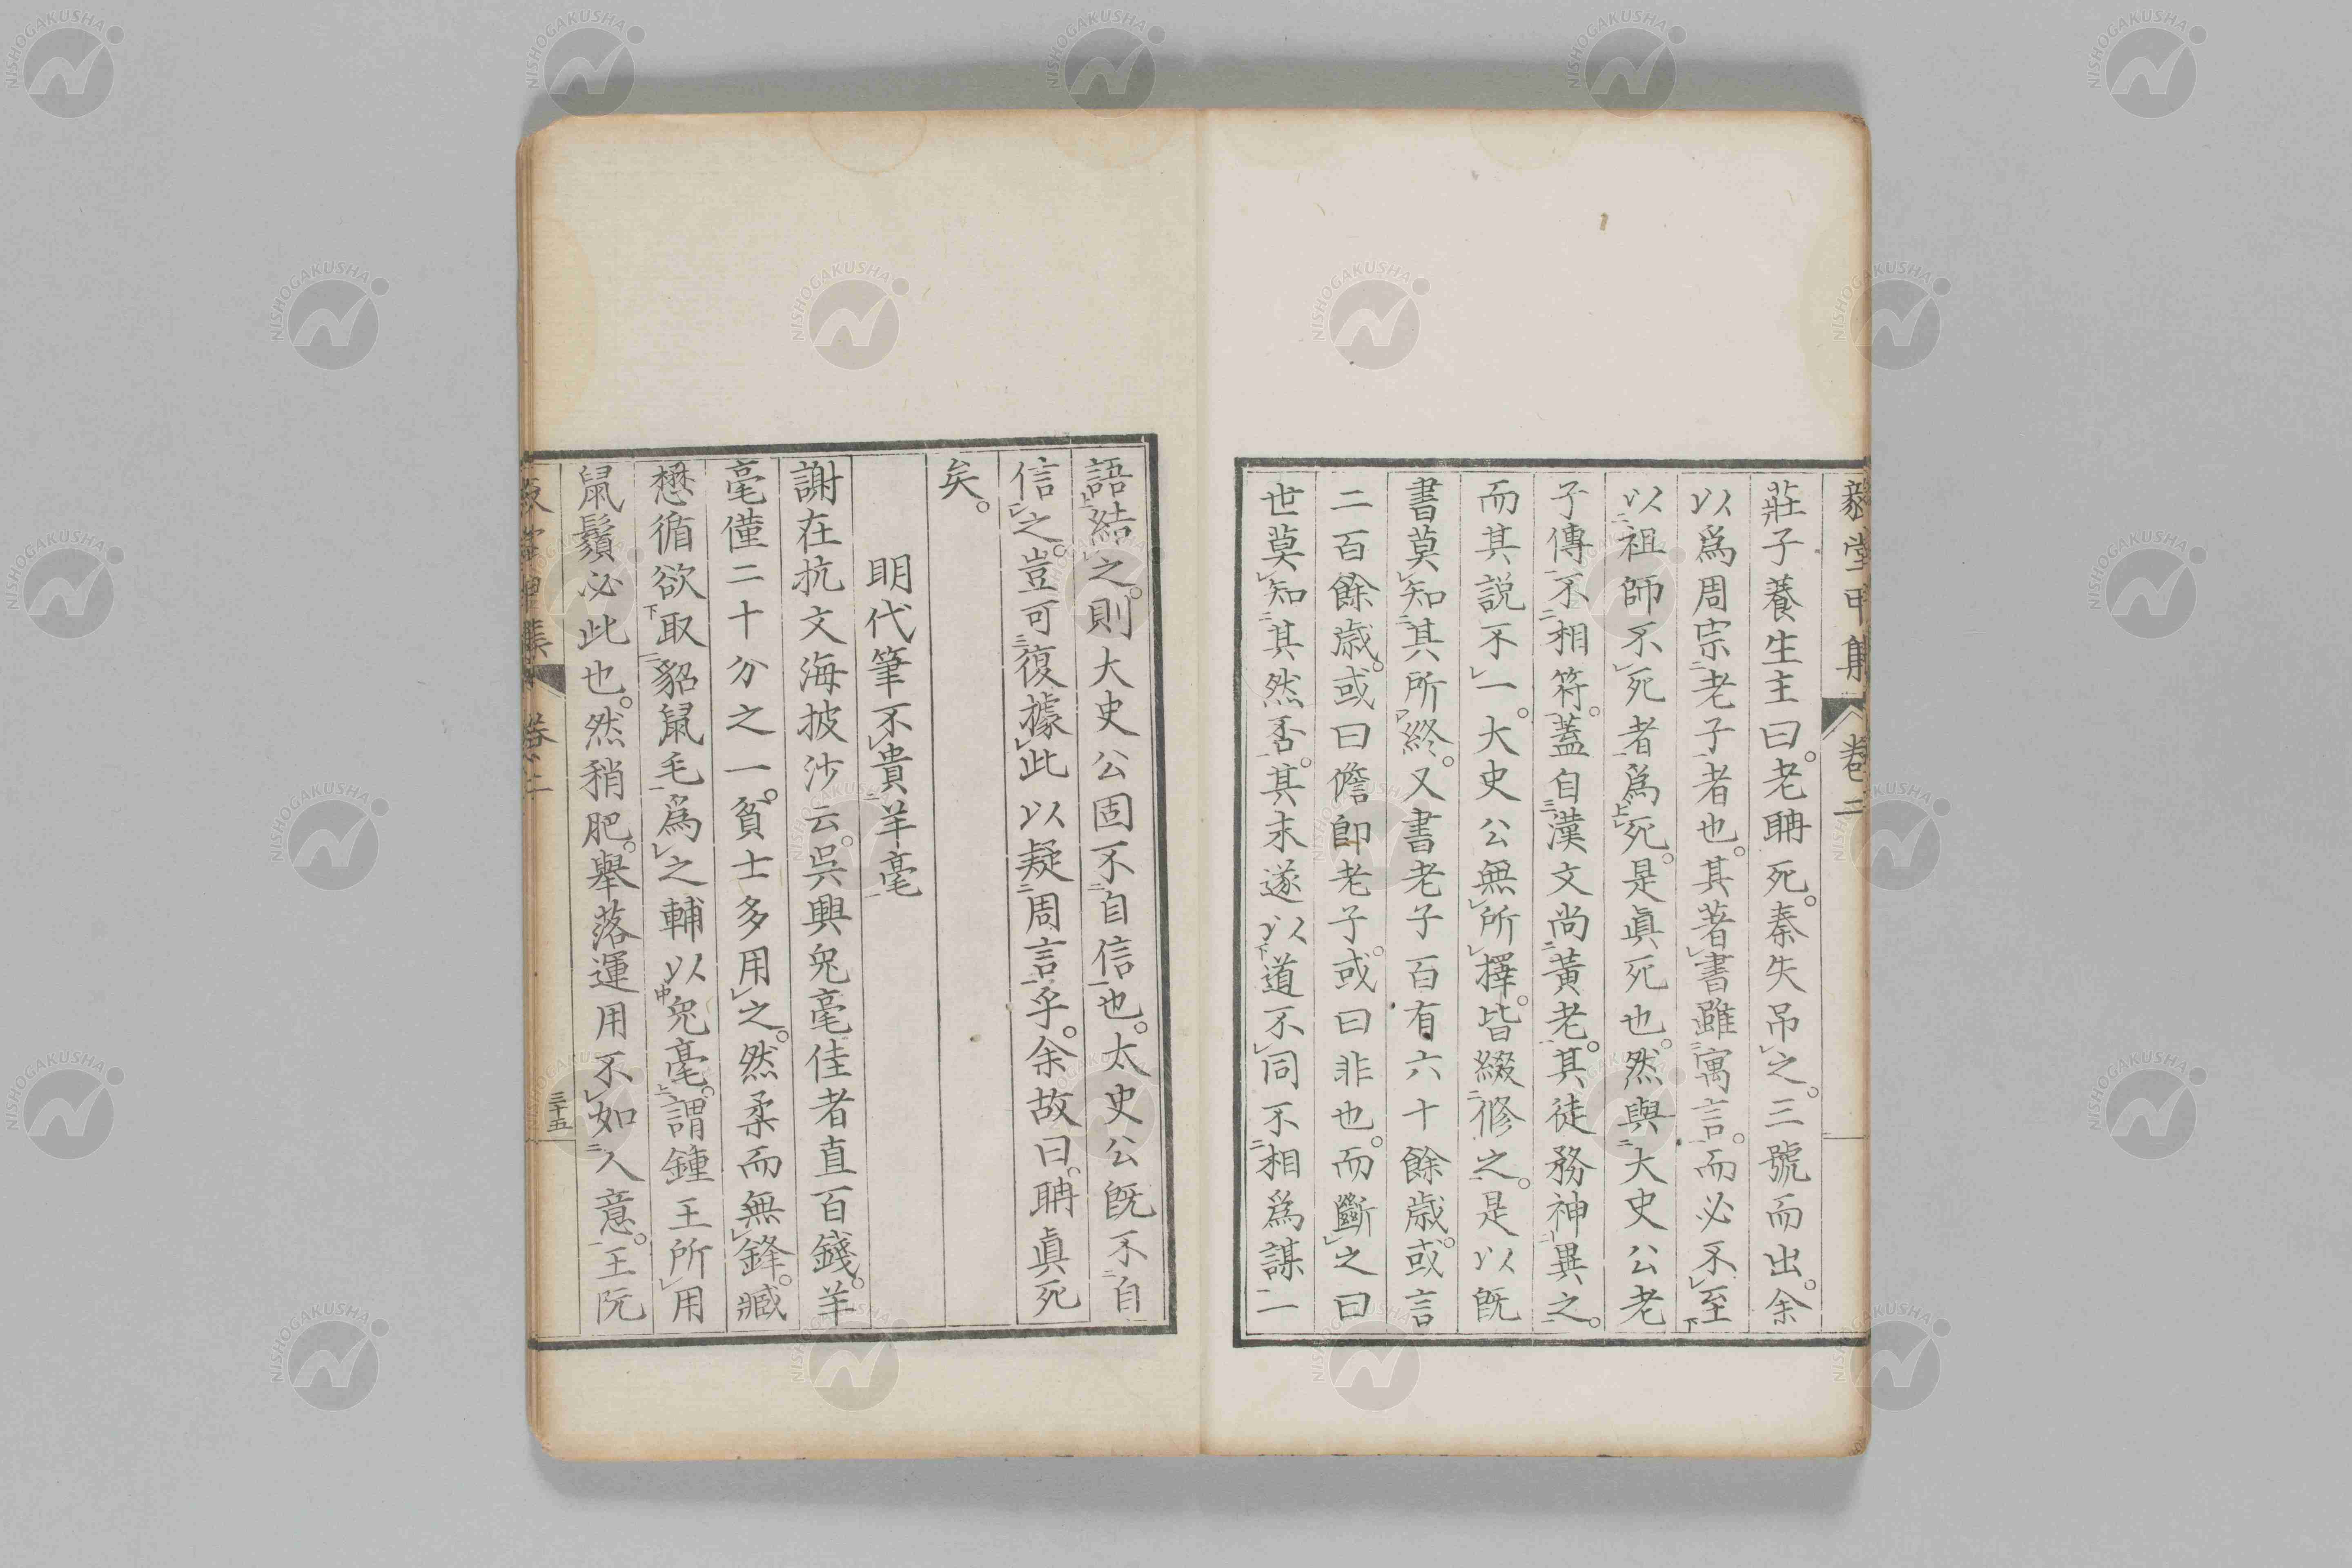 毅堂甲集
卷二
莊子養生主曰。老聃死。秦失吊之。三號而出。余
以爲周宗老子者也。其著書雖寓言。而必不至
以祖師不死者爲死。是眞死也。然與大史公老
子傳不相符。蓋自漢文尚黃老。其徒務神異之。
而其説不一。大史公無所擇。皆綴修之。是以既
書莫知其所終。又書老子百有六十餘歳。或言
二百餘歳。或曰儋即老子。或曰非也。而斷之曰
世莫知其然否。其末遂以道不同不相爲謀一
語結之。則大史公固不自信也。太史公既不自
信之。豈可復據此以疑周言乎。余故曰。聃眞死
矣。
明代筆不貴羊毫
謝在抗文海披沙云。吳興兔毫佳者直百錢。羊
毫僅二十分之一。貧士多用之。然柔而無鋒。臧
懋循欲取貂鼠毛爲之輔以兔毫。謂鍾王所用
鼠鬚必此也。然稍肥。舉落運用不如人意。王阮
三十五
NISHOGAKUSHA